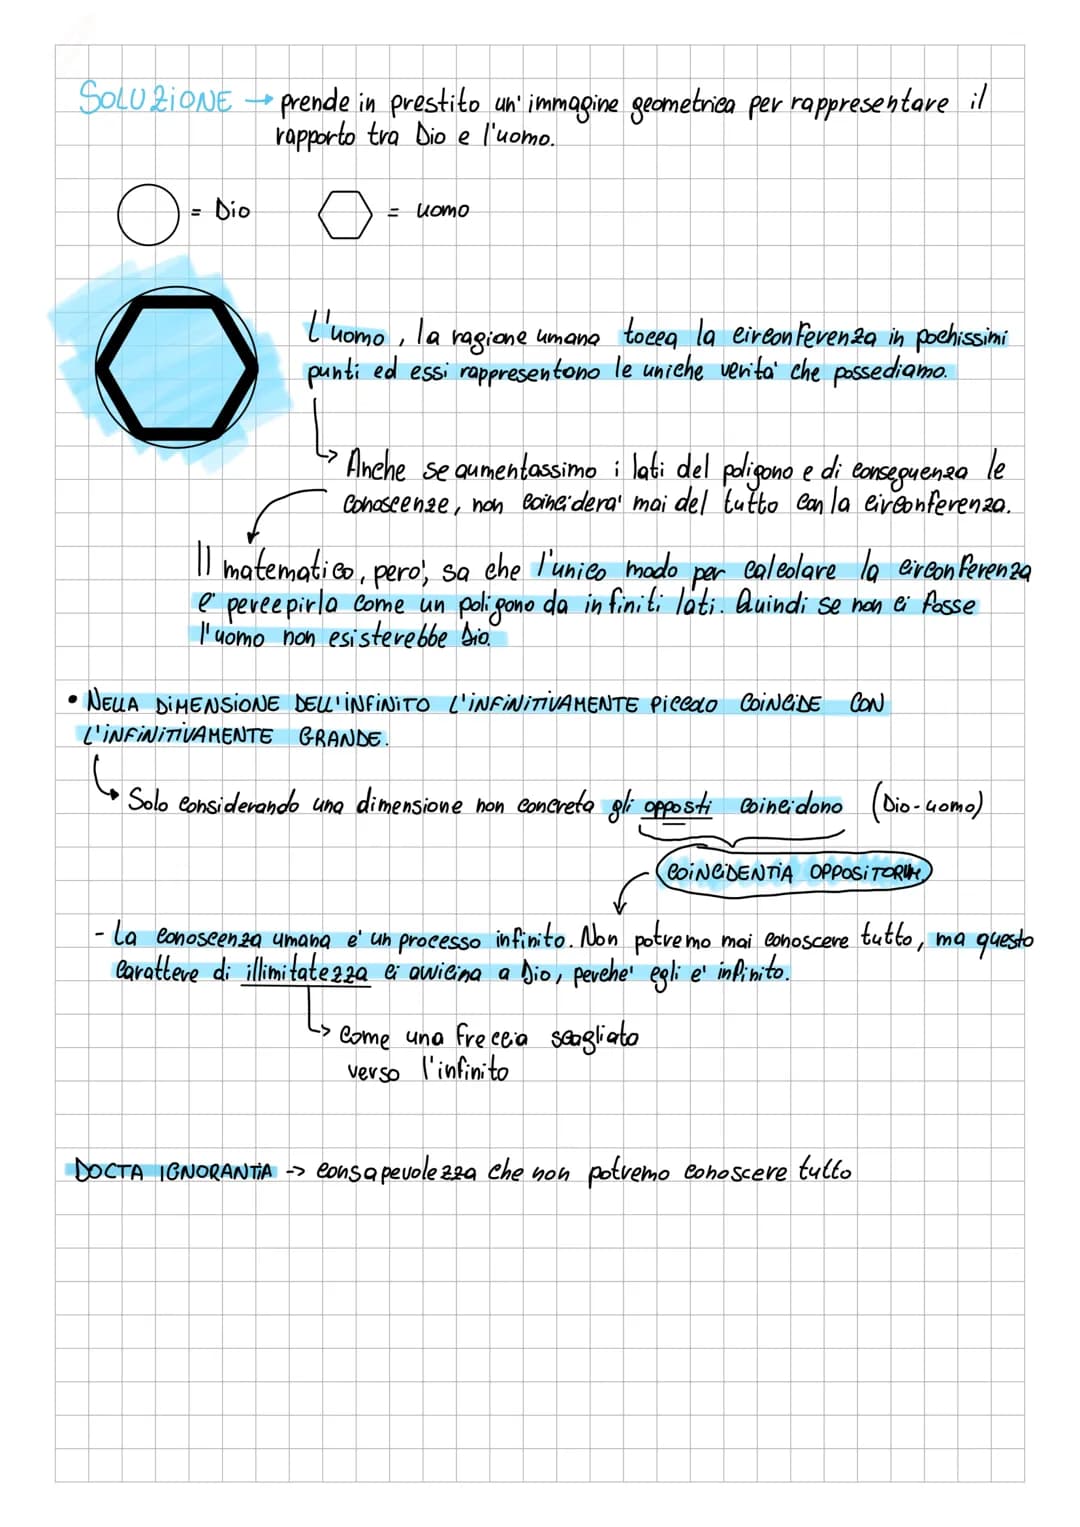 SOLUZIONE → prende in prestito un'immagine geometrica per rappresentare il
rapporto tra Dio e l'uomo.
= Dio = uomo
L'uomo, la ragione umana tocca la circonferenza in pochissimi
punti ed essi rappresentano le uniche verita' che possediamo.
↳ Anche se aumentassimo i lati del poligono e di conseguenza le
conoscenze, non coinciderà mai del tutto con la circonferenza.
Il matematico, pero', sa che l'unico modo per calcolare la circonferenza
e' percepirla come un poligono da infiniti lati. Quindi se non ci fosse
l'uomo non esisterebbe Dio.
• NELLA DIMENSIONE DELL'INFINITO L'INFINITIVAMENTE PICCOLO COINCIDE CON
L'INFINITIVAMENTE GRANDE.
↳ Solo considerando una dimensione non concreta gli opposti coincidono (Dio-uomo)
COINCIDENTIA OPPOSITORUM
- La conoscenza umana e' un processo infinito. Non potremo mai conoscere tutto, ma questo
carattere di illimitatezza ci avvicina a Dio, perche' egli e' infinito.
↳ come una freccia scagliato
verso l'infinito
DOCTA IGNORANTIA -> consapevolezza che non potremo conoscere tutto